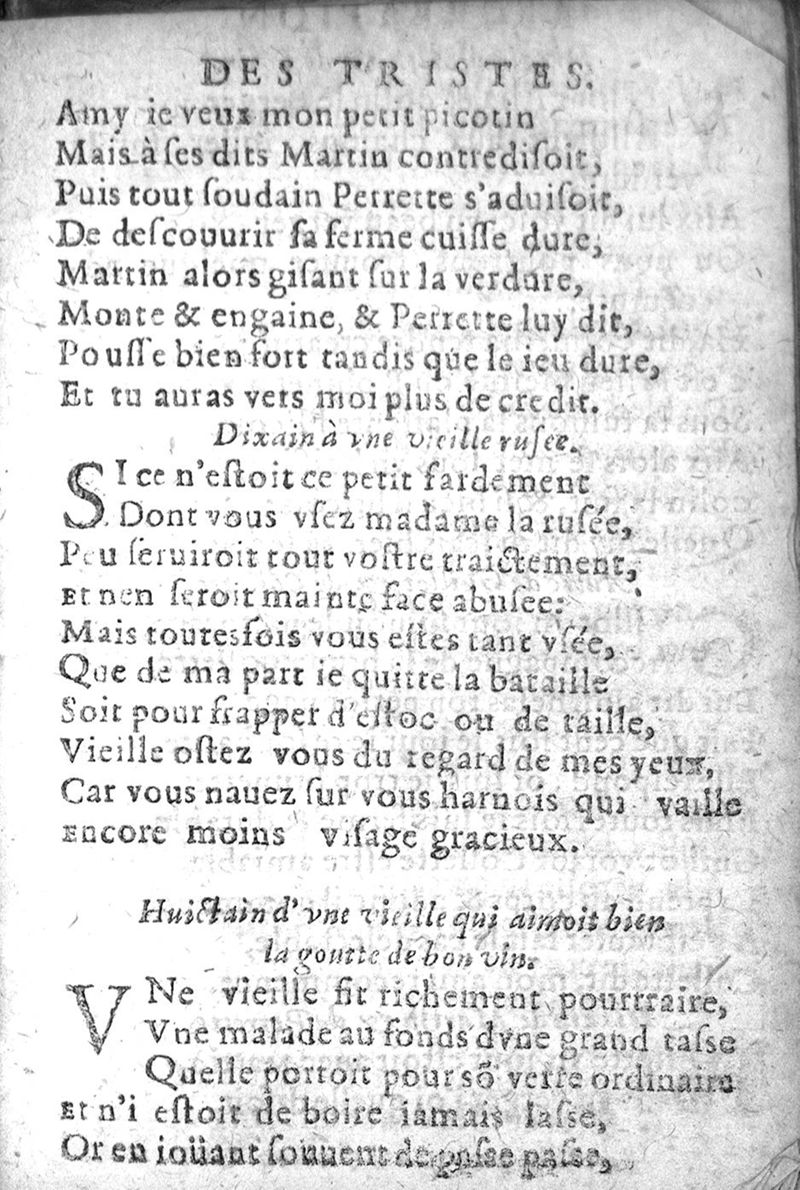 DES TRISTES.
Amy ie veux mon petit picotin
Mais à ſes dits Martin contrediſoit,
Puis tout ſoudain Perrette s'aduiſoit,
De deſcouurir ſa ferme cuiſſe dure,
Martin alors giſant ſur la verdure,
Monte & engaine, & Perrette luy dit,
Pouſſe bien fort tandis que le ieu dure,
Et tu auras vers moi plus de credit.
Dixain à vne vieille ruſee.
SI ce n'eſtoit ce petit fardement
Dont vous vſez madame la ruſée,
Peu ſeruiroit tout voſtre traictement,
Et nen ſeroit mainte face abuſee:
Mais toutesfois vous eſtes tant vſée,
Que de ma part ie quitte la bataille
Soit pour frapper d'eſtoc ou de taille,
Vieille oſtez vous du regard de mes yeux,
Car vous nauez ſur vous harnois qui vaille
Encore moins viſage gracieux.
Huictain d'vne vieille qui aimoit bien
la goutte de bon vin.
VNe vieille fit richement pourtraire,
Vne malade au fonds dvne grand taſse
Quelle portoit pour sõ verre ordinaire
Et n'i eſtoit de boire iamais laſſe,
Or en ioüant ſouuent de paſse paſse,